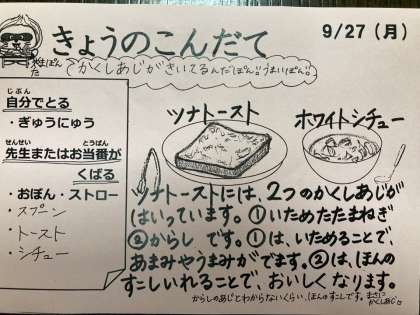 きょうのこんだて
9/27（月）
かくしあじがきいてるんだぽん。うまいぽん。
自分でとる
じぶん
・ぎゅうにゅう
せんせい
とうばん
先生またはお当番が
くばる
・おぼん・ストロー
・スプーン
・トースト
・シチュー
ツナトースト
ホワイトシチュー
ツナトーストには、2つのかくしあじが
はいっています。①いためたたまねぎ
②からし です。①は、いためることで、
あまみやうまみがでます。②は、ほんの
すこしいれることで、おいしくなります。
からしのあじとわからないくらい、ほんのすこしです。まさに
かくしあじ。